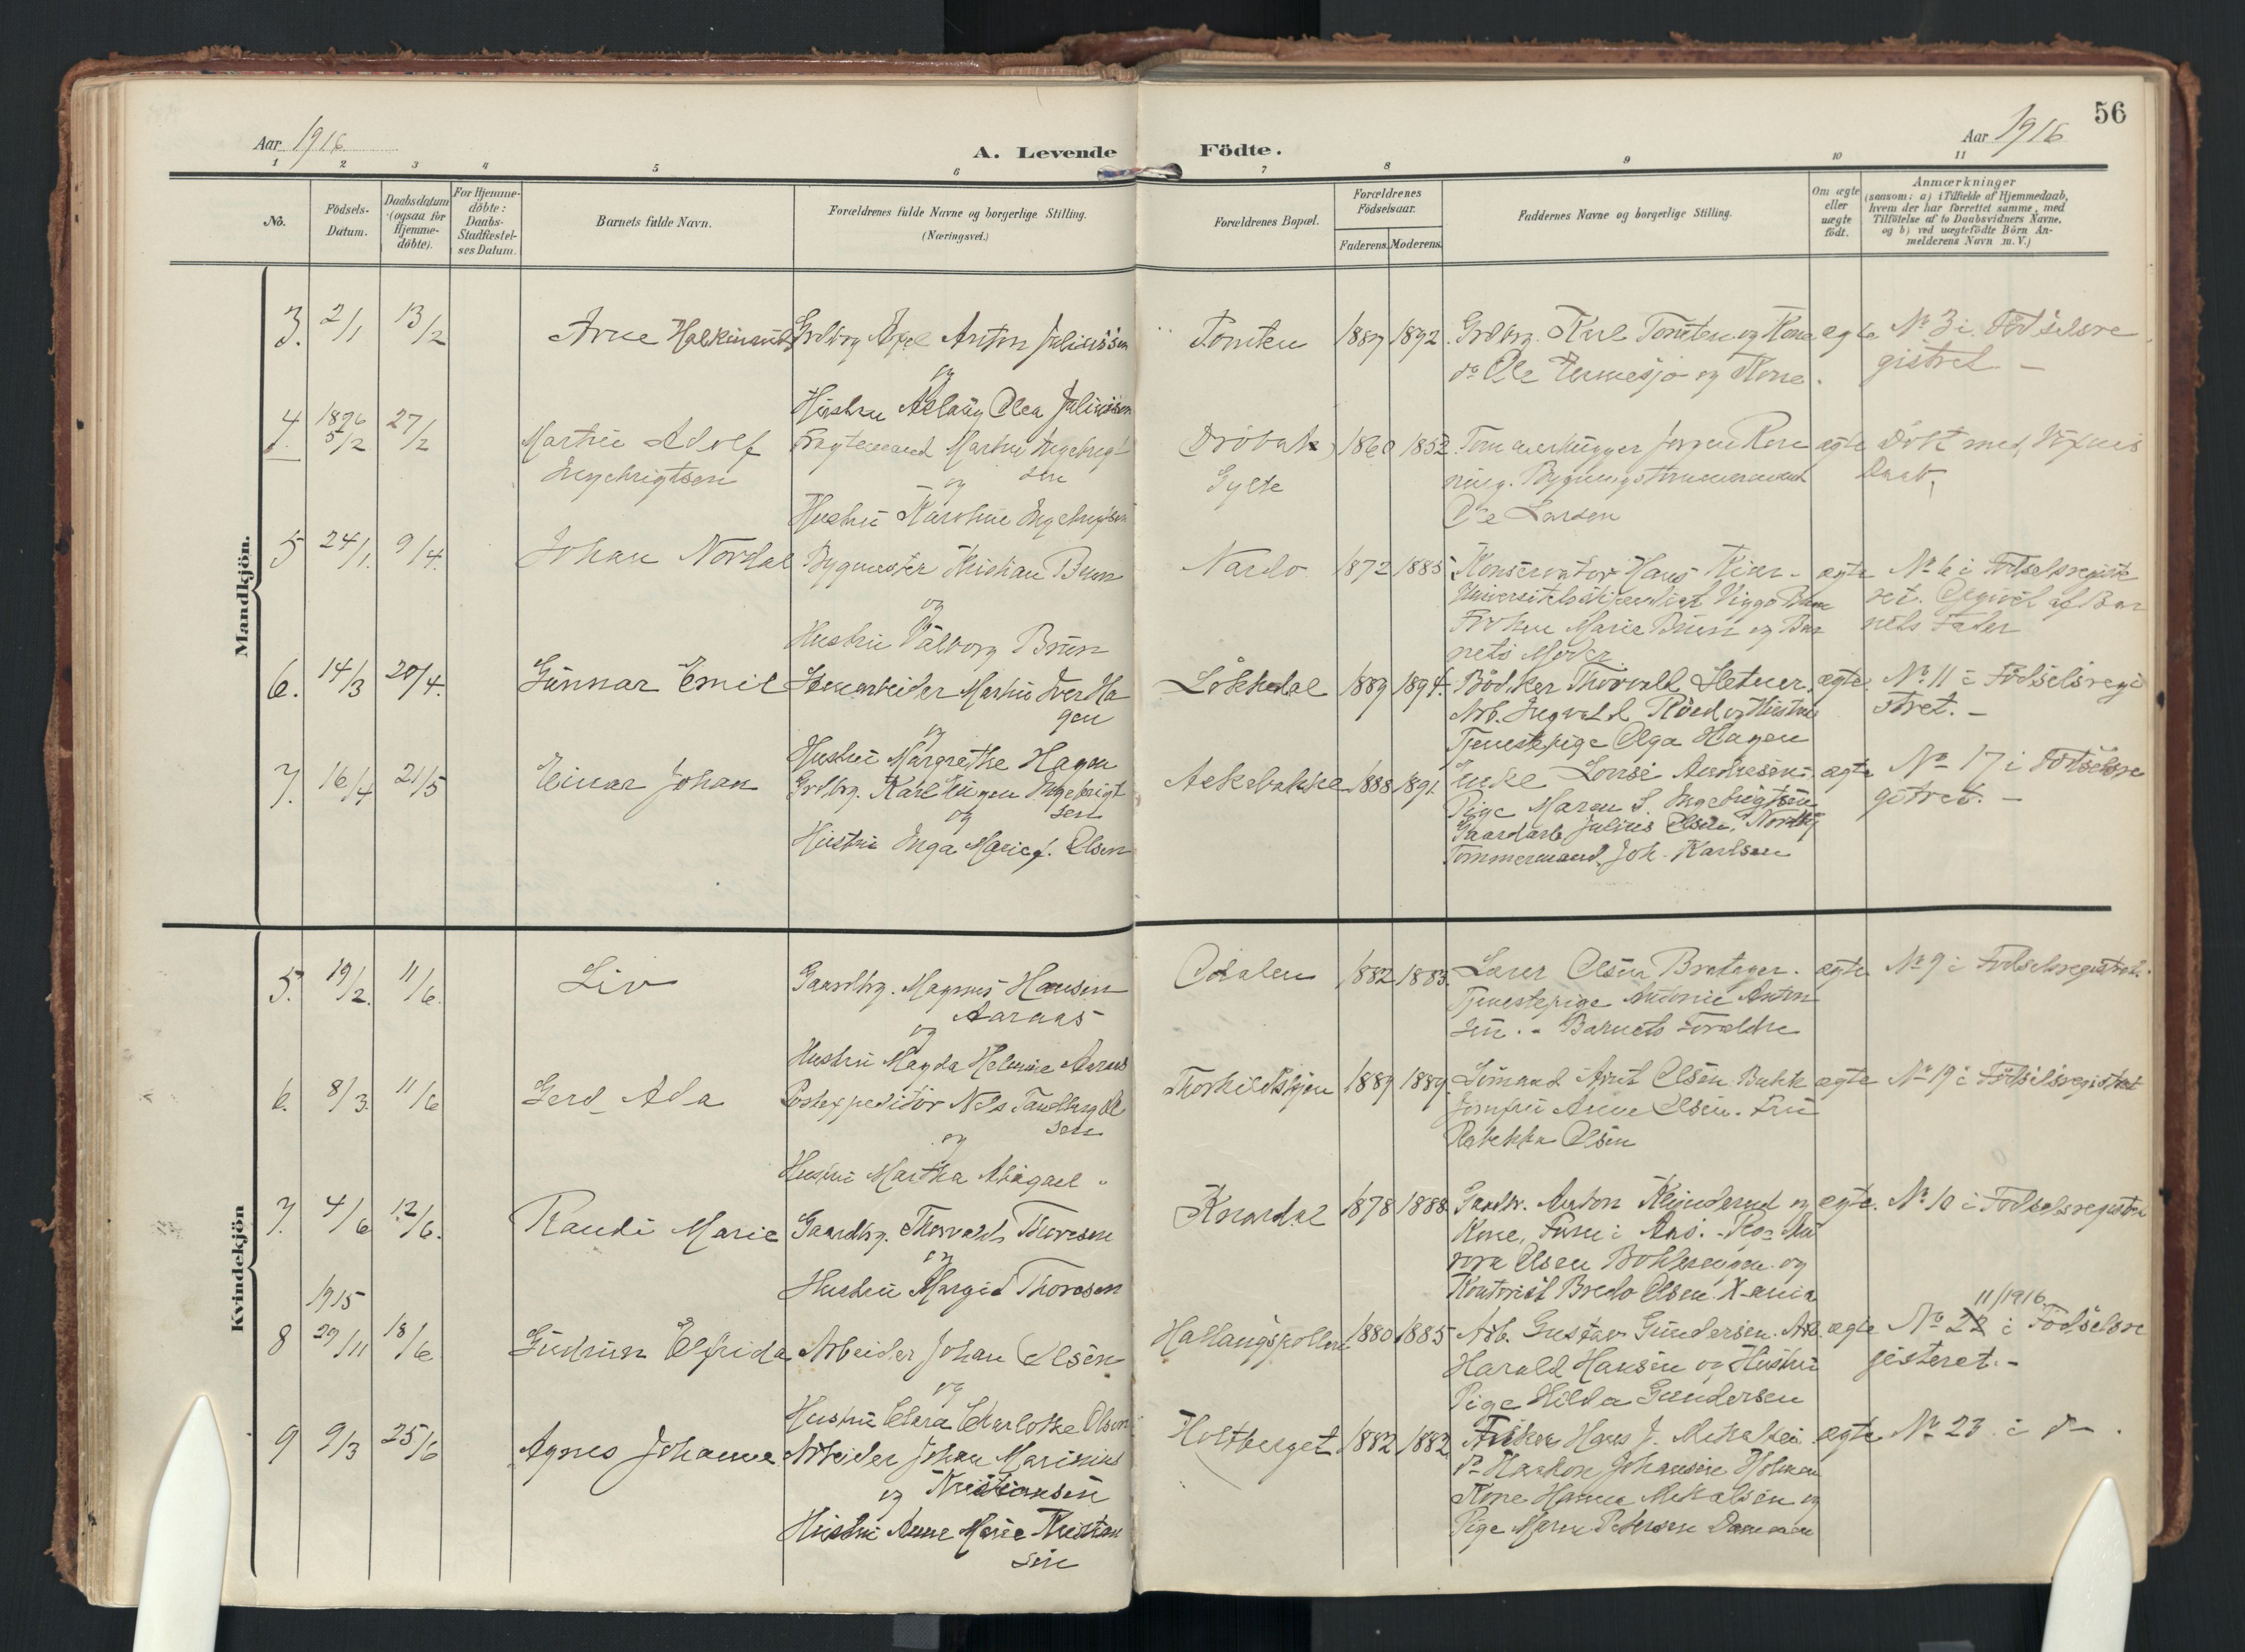 56
Aar 1916
A. Levende Födte.
Aar 1916
1 2 3 4 5 6 7 8 9 10 11
No.
Födsels-
Datum.
Daabsdatum
(ogsaa for
Hjemme-
döbte).
For Hjemme-
döbte:
Daabs-
Stadfæstel-
ses Datum.
Barnets fulde Navn.
Forældrenes fulde Navne og borgerlige Stilling.
(Næringsvei.)
Forældrenes Bopæl.
Forældrenes
Födselsaar.
Faderens. Moderens.
Faddernes Navne og borgerlige Stilling.
Om ægte
eller
uægte
födt.
Anmærkninger
(saasom: a) i Tilfælde af Hjemmedaab,
hvem der har forrettet samme, med
Tilföielse af to Daabsvidners Navne,
og b) ved uægtefödte Börn An-
melderens Navn m. V.)
Mandkjön.
3. 2/1 13/2 Arne Grdbrg Anton Juliussen
og
Hustru Aslaug Olea Juliussen
Tomten 1889 1892. Grdbrg. Karl Tomten og Kone
do Ole og Kone.
ægte No 3 i Födselsre
gistret. —
4. 1896 5/2 27/2 Martin Adolf
Engebrigtsen
Fragtemand Martin Ingebrigt
sen
og
Hustru Karoline Ingebrigtsen
Dröbak
Gylte
1860 1852. Tømmerhugger Jørgen
Bygningstømmermand
Ole Larsen
ægte Döbt med Voxnes
Daab.
5 24/1. 9/4. Johan Nordal Bygmester Kristian Brun
og
Hustru Valborg Brun
Nardo 1872 1885 Konservator Hans Kiær -
Viggo Brun
Fröken Marie Brun og Bar
nets Moder
ægte No 6 i Födselsregiste
ret. Opgivet af Bar
nets Fader
6. 14/3 20/4. Gunnar Emil Stenarbeider Martin Iver Ha
gen
og
Hustru Margrethe Hagen
Løkkedal 1889 1894. Bødker Thorvald
Arb. Ingvald og Hustru
Tjenestepige Olga Hagen
ægte. No 11 i Födselsregi
stret. —
7. 16/4 21/5 Einar Johan Grdbrg. Karl Ingebrigt
sen
og
Hustru Inga Marie f. Olsen
Askebakke 1888 1891. Enke Lovise Andresen.
Pige Maren S. Ingebrigtsen
Gaardarb. Julius Olsen, Nordby
Tømmermand Joh. Karlsen
ægte No 17 i Födselsre
gistret. —
Kvindekjön
5. 19/2. 11/6. Liv Gaardbrg. Magnus Hansen
Aaraas
og
Hustru Magda Helmine Aaraas
Odalen 1882 1883. Lærer Olsen Bratager.
Tjenestepige Antonie Anton
sen. - Barnets Forældre
ægte No 9 i Födselsregistret.
6. 8/3. 11/6 Gerd Ada Postexpeditör Nils Tandberg Ol
sen
og
Hustru Martha Abigael "
Thorkildskjøn 1889 1889. Sømand Arnt Olsen Bakke
Jomfru Anne Olsen. Fru
Rebekka Olsen
ægte No 19 i Födselsregistret
7. 4/6 12/6. Randi Marie Gaardbrg. Thorvald Thoresen
og
Hustru Margit Thoresen
Knardal 1878 1888 Gaardbr. Anton og
Kone, i Aas.
Olsen og
Kontorist Bredo Olsen X-ania
ægte. No 10 i Födselsregistret
8 1915 29/11 18/6 Gudrun Elfrida Arbeider Johan Olsen
og
Hustru Clara Charlotte Olsen
Hallangspollen 1880 1885 Arb. Gustav Gundersen. Arb.
Harald Hansen og Hustru
Pige Hilda Gundersen
ægte 11/1916
No 22 i Födselsre
gisteret. -
9 9/3 25/6 Agnes Johanne Arbeider Johan Marinius
og Kristiansen
Hustru Anne Marie Kristian
sen
Holtberget 1882 1882 Fisker Hans J. Mikalsen
do Haakon Johansen Holmen
Kone Hanna Mikalsen og
Pige Maren Pedersen Dammen
ægte No 23 i do.